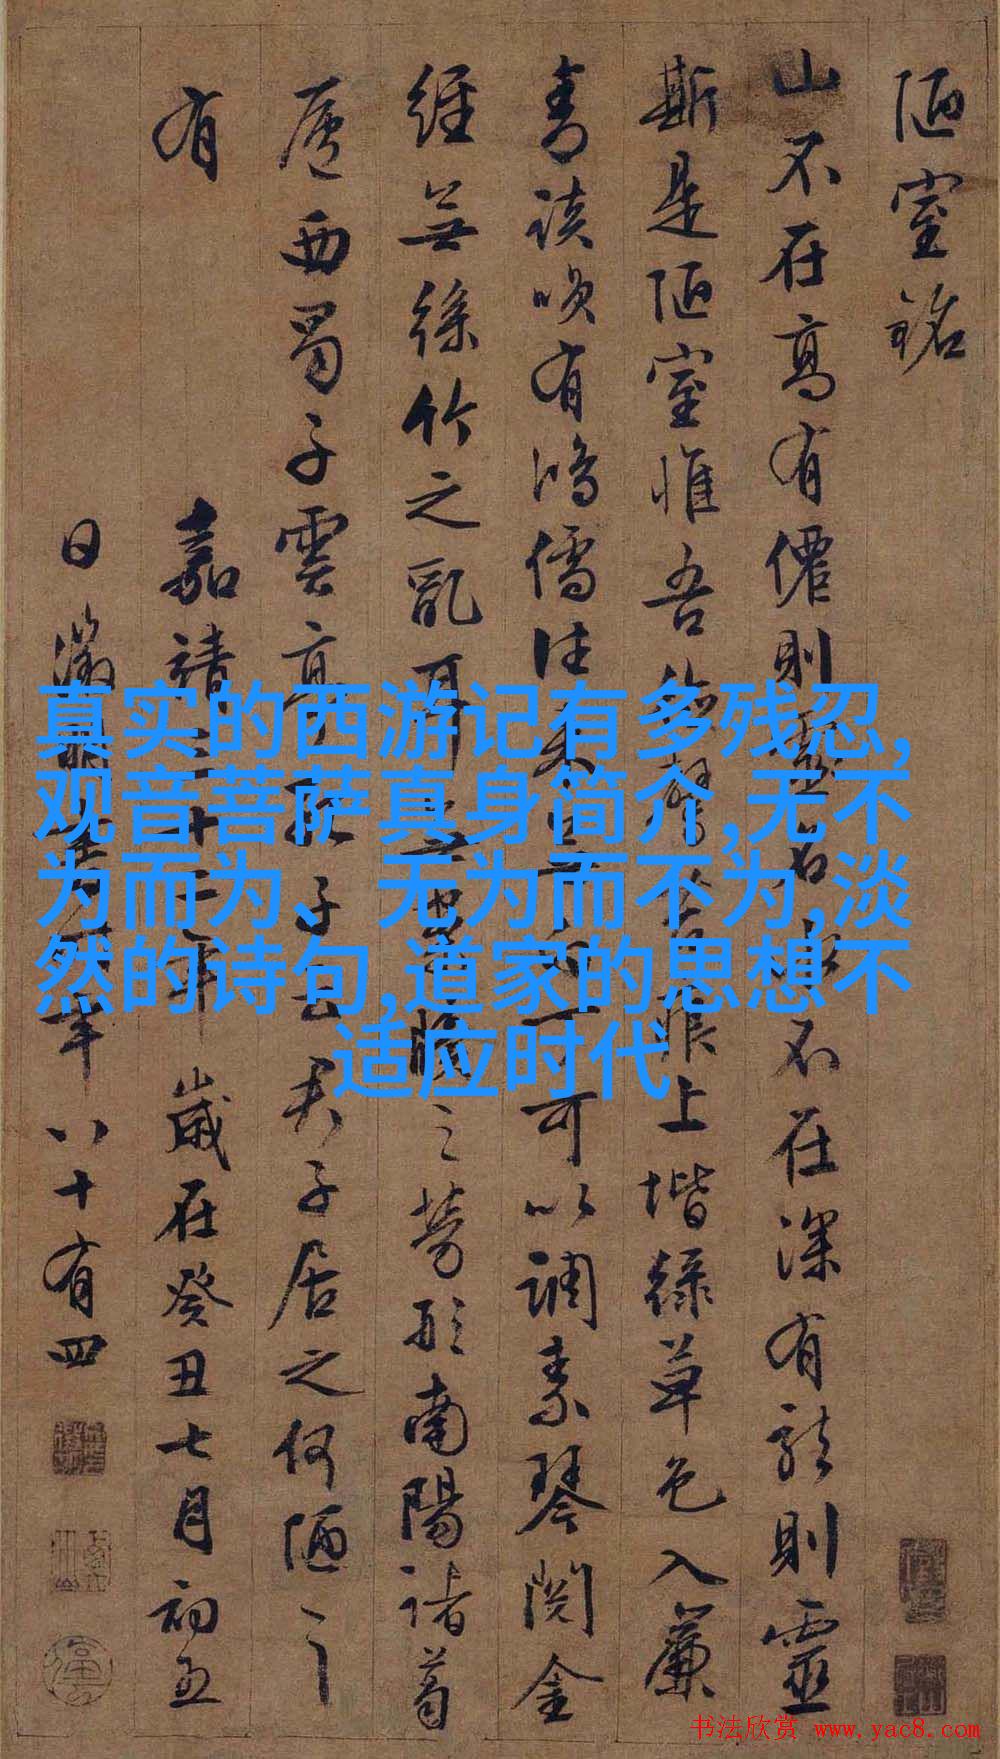 陋室銘
山不在高有僊則名水不在深有龍則靈
斯是陋室惟吾德馨苔痕上堦綠草色入簾
青談咲有鴻儒往来無白丁可以調素琴閱金
經無絲竹之亂耳無案牘之勞形南陽諸葛
廬西蜀子雲亭孔子云君子居之何陋之
有
嘉靖三十二年歲在癸丑七月初五
日徵明書時年八十有四
真实的西游记有多残忍,
观音菩萨真身简介,无不
为而为、无为而不为,淡
然的诗句,道家的思想不
适应时代
书法欣赏 www.yac8.com